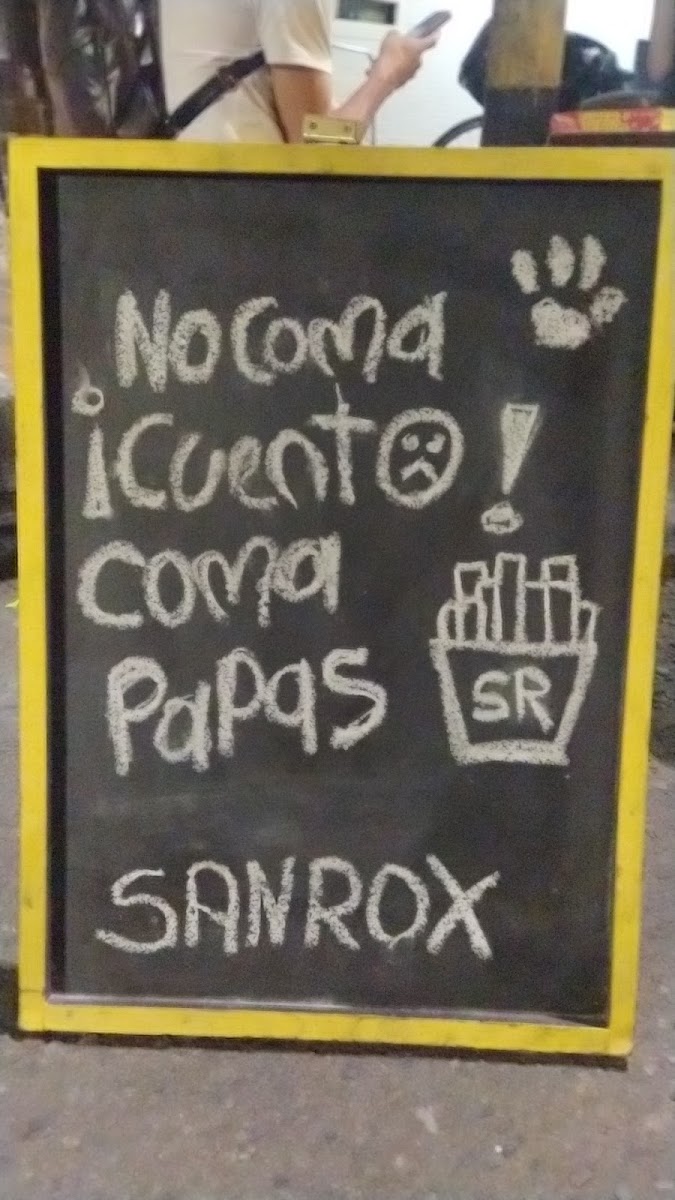 No coma
¡cuento!
coma
papas
SR
SANROX